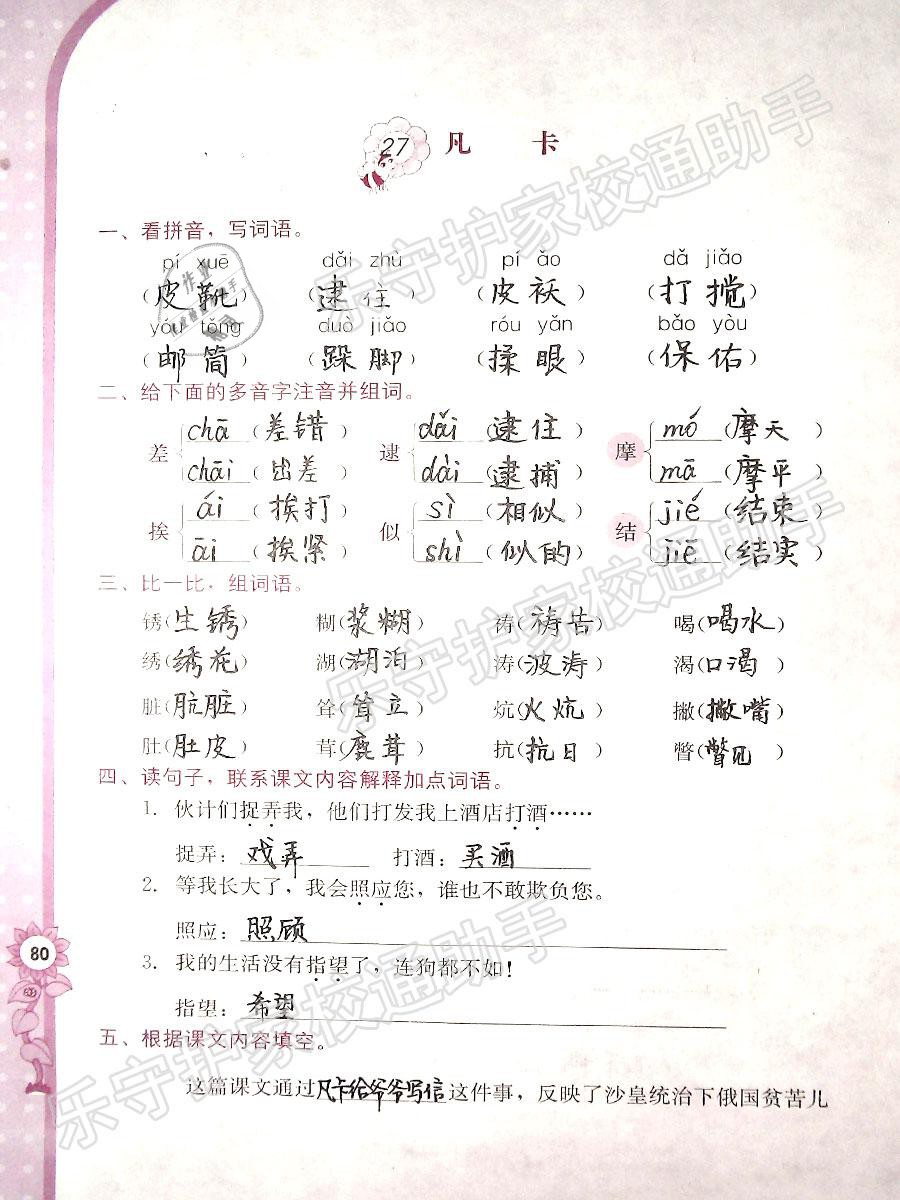 27 凡 卡
一、看拼音，写词语。
pí xuē dǎi zhù pí ǎo dǎ jiǎo
（皮靴） （逮住） （皮袄） （打搅）
yóu tǒng duò jiǎo róu yǎn bǎo yòu
（邮筒） （跺脚） （揉眼） （保佑）
二、给下面的多音字注音并组词。
差 chā（差错） 逮 dǎi（逮住） 摩 mó（摩天）
chāi（出差） dài（逮捕） mā（摩平）
挨 ái（挨打） 似 sì（相似） 结 jié（结束）
āi（挨紧） shì（似的） jiē（结实）
三、比一比，组词语。
锈（生锈） 糊（浆糊） 祷（祷告） 喝（喝水）
绣（绣花） 湖（湖泊） 涛（波涛） 渴（口渴）
脏（肮脏） 耸（耸立） 炕（火炕） 撇（撇嘴）
肚（肚皮） 茸（鹿茸） 抗（抗日） 瞥（瞥见）
四、读句子，联系课文内容解释加点词语。
1. 伙计们捉弄我，他们打发我上酒店打酒……
捉弄：戏弄 打酒：买酒
2. 等我长大了，我会照应您，谁也不敢欺负您。
照应：照顾
3. 我的生活没有指望了，连狗都不如！
指望：希望
五、根据课文内容填空。
这篇课文通过凡卡给爷爷写信这件事，反映了沙皇统治下俄国贫苦儿
80
乐守护家校通助手
乐守护家校通助手
乐守护家校通助手
乐守护家校通助手